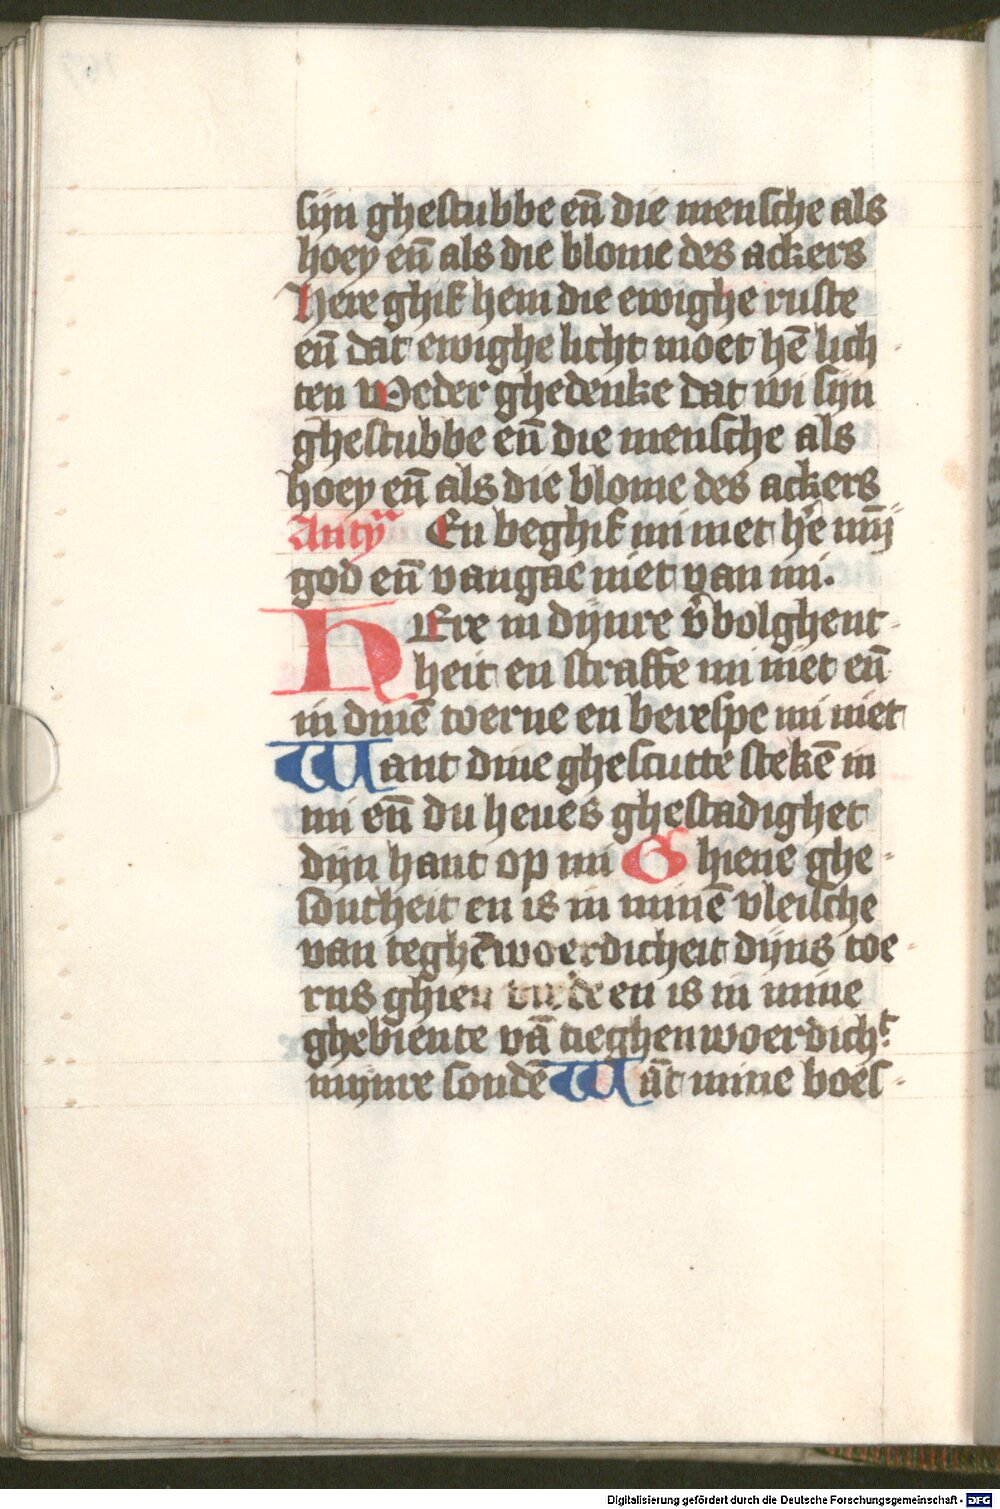 sijn ghestubbe en̄ die mensche als
hoey en̄ als die blome des ackers
Here ghif hem die ewighe ruste
en̄ dat ewighe licht moet hē lich
ten Weder ghedenke dat wi sijn
ghestubbe en̄ die mensche als
hoey en̄ als die blome des ackers
Anty En beghif mi niet h̄e mi̅j
god en̄ vangae niet van mi.
HEre in dijnre v̾bolghent
heit en straffe mi niet en̄
in dinē toerne en berespe mi niet
Want dine ghescutte stekē in
mi en̄ du heues ghestadighet
dijn hant op mi Ghiene ghe
sontheit en is in minē vleische
van teghēwoerdicheit dijns toe
rns ghien vrede en is in mine
ghebiente vā tieghenwoerdichᵗ
mijnre sondē Wāt mine boes
Digitalisierung gefördert durch die Deutsche Forschungsgemeinschaft - DFG